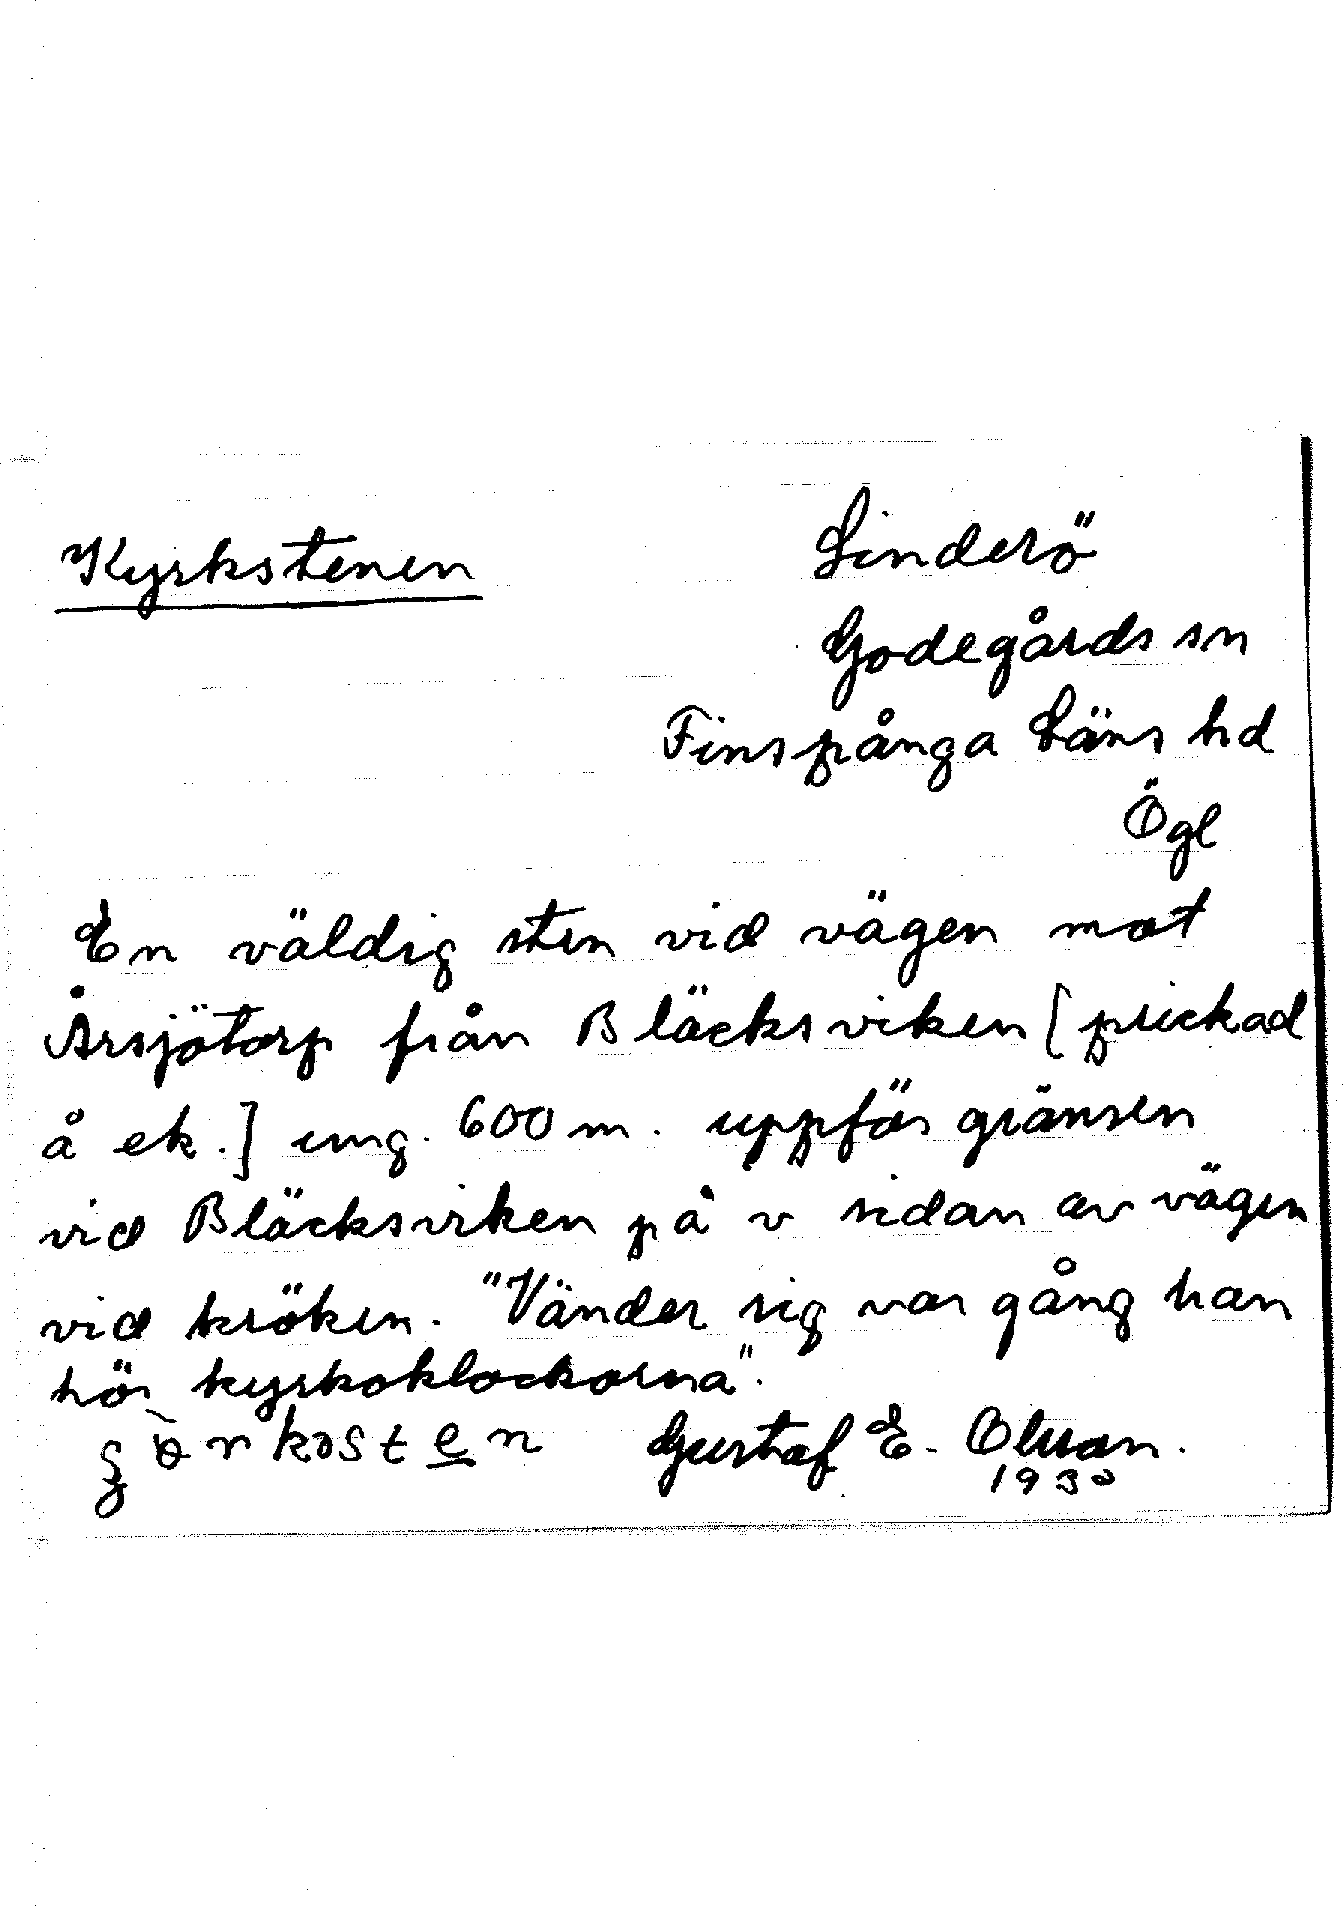 Kyrkstenen
Linderö
Godegårds sn
Finspånga Läns hd
Ögl
En väldig sten vid vägen mot
Årsjötorp från Bläcksviken [prickad
å ek.] ung. 600 m. uppför gränsen
vid Bläcksviken på v sidan av vägen
vid kröken. "Vänder sig var gång han
hör kyrkoklockorna".
Gustaf E. Olsson.
1930